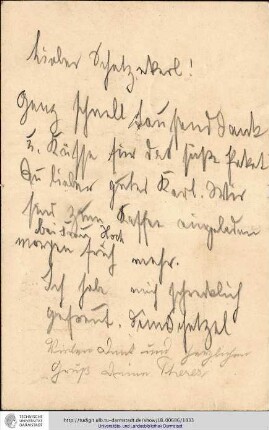 Lieber Schatzekerl!
Ganz schnell tausend Dank
u. Küsse für das süße Paket
Du lieber guter Kerl. Wir
sind zum Kaffee eingeladen
bei Frau Koch
morgen früh mehr.
Ich habe mich schrecklich
gefreut. Dein Schatzel
Vielen Dank und herzlichen
Gruß Deine Therese
TECHNISCHE
UNIVERSITÄT
DARMSTADT
Universitäts- und Landesbibliothek Darmstadt